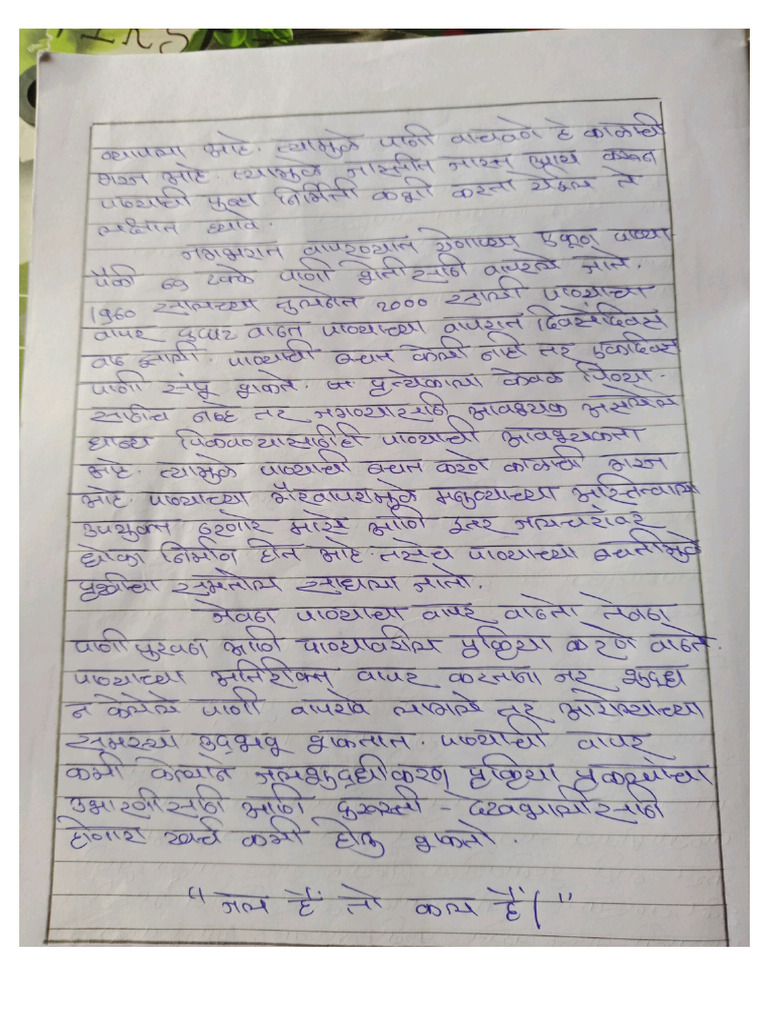 व्यापला आहे. त्यामुळे पाणी वाचवणे हे काळाची
गरज आहे. त्यामुळे जास्तीत जास्त प्रयास करून
पाण्याची पुन्हा निर्मिती कशी करता येईल ते
लक्षात घ्यावे.
जगभरात वापरण्यात येणाऱ्या एकूण पाण्या-
पैकी ६९ टक्के पाणी शेतीसाठी वापरले जाते.
1960 सालच्या तुलनेत 2000 साली पाण्याचा
वापर दुप्पट वाढत पाण्याच्या वापरात दिवसेंदिवस
वाढ झाली. पाण्याची बचत केली नाही तर एकदिवस
पाणी संपू शकते. प्रत्येकाला केवळ पिण्या-
साठीच नव्हे तर जगण्यासाठी आवश्यक असलेले
धान्य पिकवण्यासाठीही पाण्याची आवश्यकता
आहे. त्यामुळे पाण्याची बचत करणे काळाची गरज
आहे. पाण्याच्या गैरवापरामुळे मनुष्याच्या अस्तित्वाला
उपयुक्त ठरणारे मासे आणि इतर जलचरांवर
धोका निर्माण होत आहे. तसेच पाण्याच्या बचतीमुळे
पृथ्वीचा समतोल साधला जातो.
जेवढा पाण्याचा वापर वाढतो तेवढा
पाणी पुरवठा आणि पाण्यावरील प्रक्रिया करणे वाढते.
पाण्याच्या अतिरीक्त वापर करताना जर शुद्ध
न केलेले पाणी वापरावे लागले तर आरोग्याच्या
समस्या उद्भवू शकतात. पाण्याची वापर
कमी केल्याने जलशुद्धीकरण प्रक्रिया प्रकल्पांचा
उभारणीसाठी आणी दुरुस्ती - देखभालीसाठी
होणारा खर्च कमी होऊ शकतो.
"जल है तो कल है।"